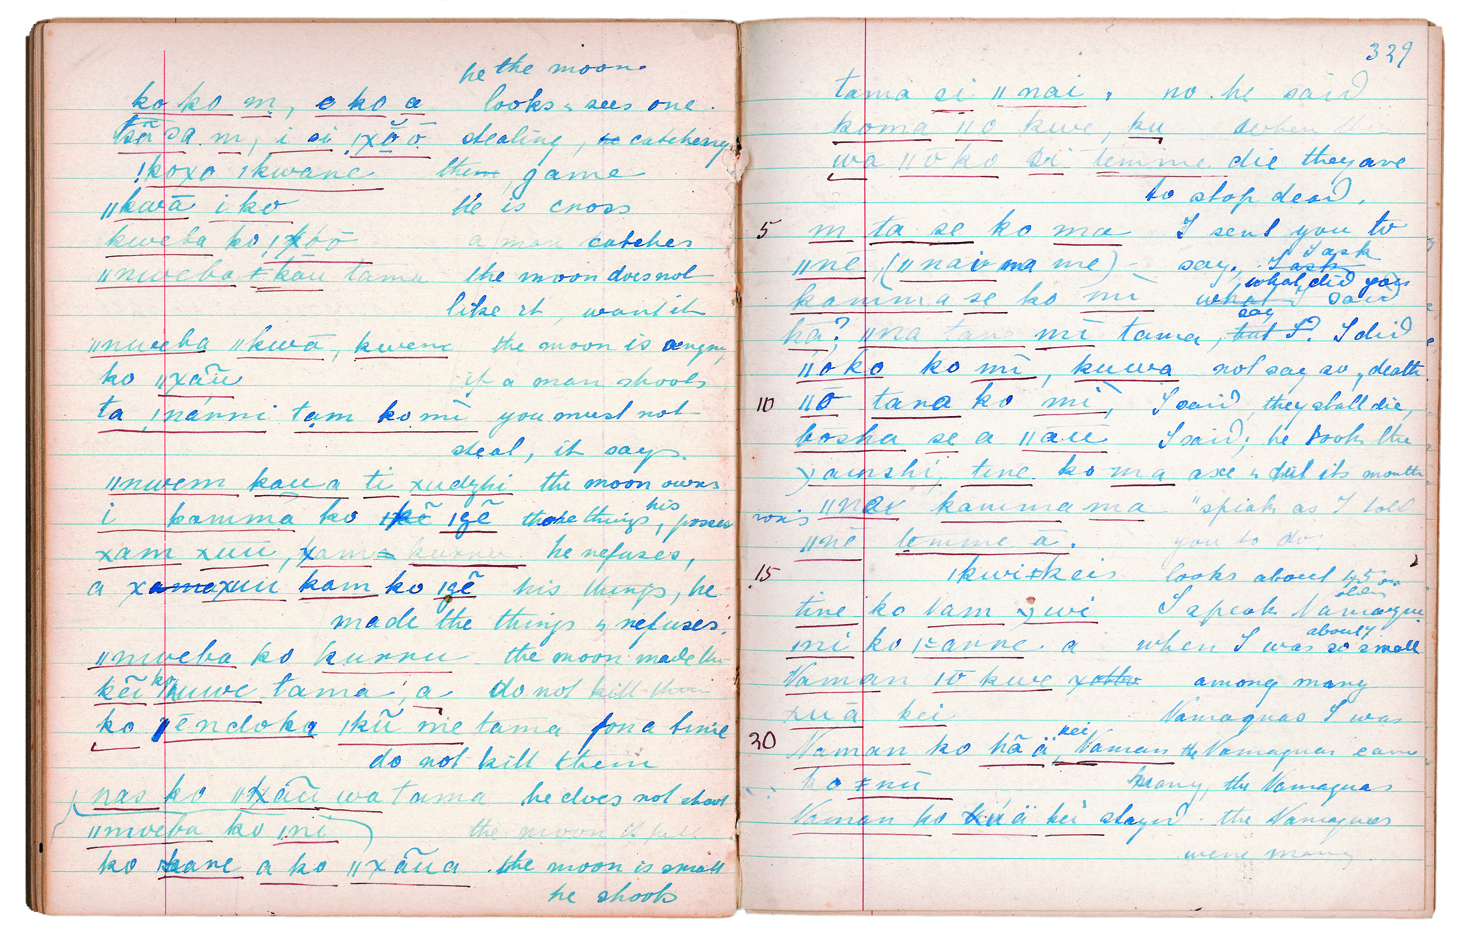 he the moon
ko ko m, e ko a looks & sees one.
tsã sa m, i si !xõo stealing, catching
!koxo !kwane them game
ǁkwā i ko he is cross
kweba ko, !xóō a man catches
ǁnweba ǂkāu tama the moon does not
like it, want it
ǁnweba ǁkwā, kwenx the moon is angry,
ko ǁxāũ if a man shoots
ta ǀnánni tam ko mĩ you must not
steal, it says.
ǁnwem kau a ti xudzhi the moon owns
i kamma ko ǀgẽ those things, his posses
xam xuū, xam kurru he refuses,
a xamaxuu kam ko ǀgẽ his things, he
made the things & refuses.
ǁnweba ko kurru the moon made the
kẽi ko ǀkuwe tama, a do not kill them
ko ǁēndoka ǀkũ me tama for a time
do not kill them
(nas ko ǁxāũ wa tama he does not shoot
ǁnweba ko ǀni) the moon is full
ko ǀkane a ko ǁxãũa. the moon is small
he shoots
329
tama si ǁnai, no he said
koma ǁo kwe, ku when the
wa ǁō ko si temme die they are
to stop dead.
5 m ta se ko ma I sent you to
ǁnē (ǁnai ma me) - say, I ask I ask
kamma se ko mi what I said what did you
hã? ǁna tan mĩ tama, but I? I did say
ǁo ko ko mĩ, kuwa not say so, death
10 ǁō tana ko mĩ, I said, they shall die,
bosha se a ǁāu I said; he took the
)aunshi, tine ko ma axe & put its mouth
ǁnav kamma ma "speak as I told
ǁnē temme ā. you to do
15 ǀkwiǂkeis looks about 45 or
tine ko tam )wi I speak Namaqua been
mi ko ǀkanne a when I was so small about 7
Naman ǀō kwe among many
xuā kei Namaquas I was
20 Naman ko hã ä, kei Naman the Namaquas came
ho ǂnū many, the Namaquas
Naman ko kei stayed. the Namaquas
were many